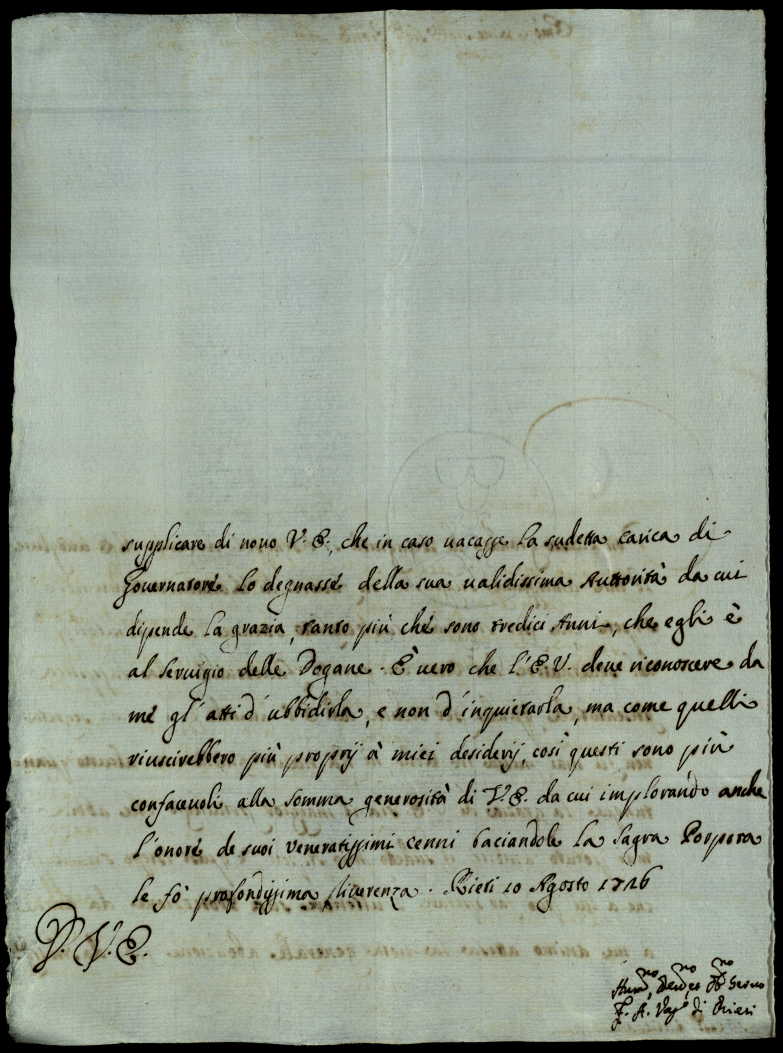 supplicare di novo V. E., che in caso uacasse la sudetta carica di
Gouernatore lo degnasse della sua ualidissima Auttorità da cui
dipende la grazia, tanto più che sono tredici Anni, che egli è
al seruigio delle Dogane. È uero che l'E. V. deue riconoscere da
me gl'atti d'ubbidirla, e non d'inquietarla, ma come quelli
riuscirebbero più proprij à miei desiderij, così questi sono più
confaceuoli alla somma generosità di V. E. da cui implorando anche
l'onore de suoi veneratissimi cenni baciandole la Sagra Porpora
le fò profondissima Riuerenza. Rieti 10 Agosto 1716
D. V. E.
Hum.mo Deu.mo
F. A. Vesc.o di Rieti